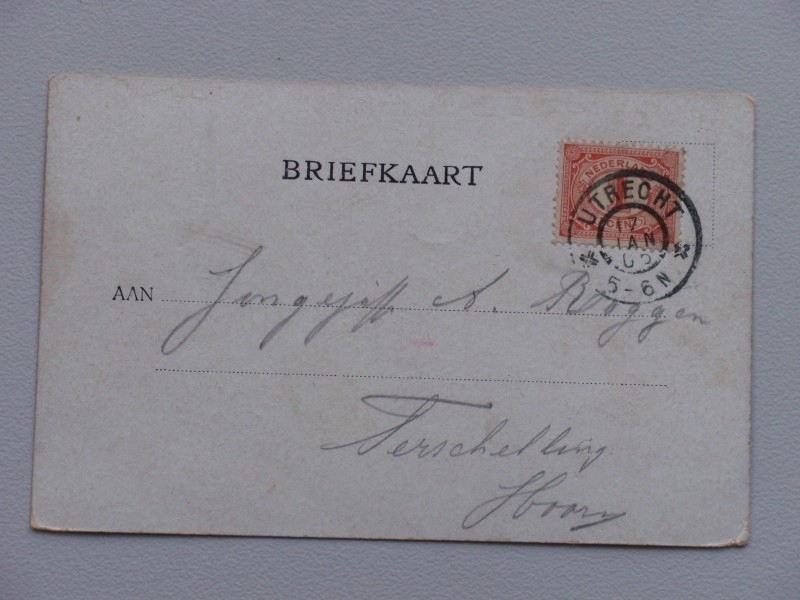 BRIEFKAART
NEDERLAND
CENT
UTRECHT
17
JAN
5-6N
AAN Jongejuff A. Roggen
Terschelling
Hoorn